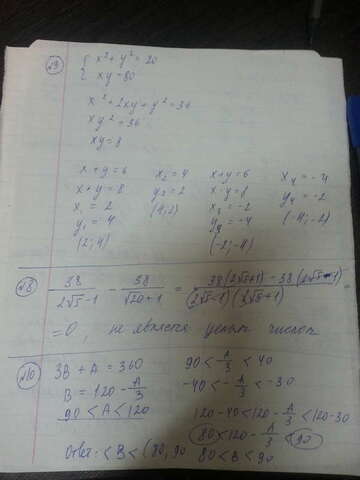 №9 { x² + y² = 20
xy = 80
x² + 2xy + y² = 36
xy² = 36
xy = 8
x + y = 6   x₂ = 4   x + y = 6   x₄ = -4
x + y = 8   y₂ = 2   x · y = 8   y₄ = -2
x₁ = 2   (4; 2)   x₃ = -2   (-4; -2)
y₁ = 4   y₃ = -4
(2; 4)   (-2; -4)
№8 38/(2√5-1) - 38/(√20+1) = (38(2√5+1) - 38(2√5-1))/((2√5-1)(2√5+1))
= 0, не является целым числом
№10 3B + A = 360   90 < A/3 < 40
B = 120 - A/3   -40 < -A/3 < -30
90 < A < 120   120-40 < 120 - A/3 < 120-30
80 < 120 - A/3 < 90
Ответ: < B < (80, 90   80 < B < 90